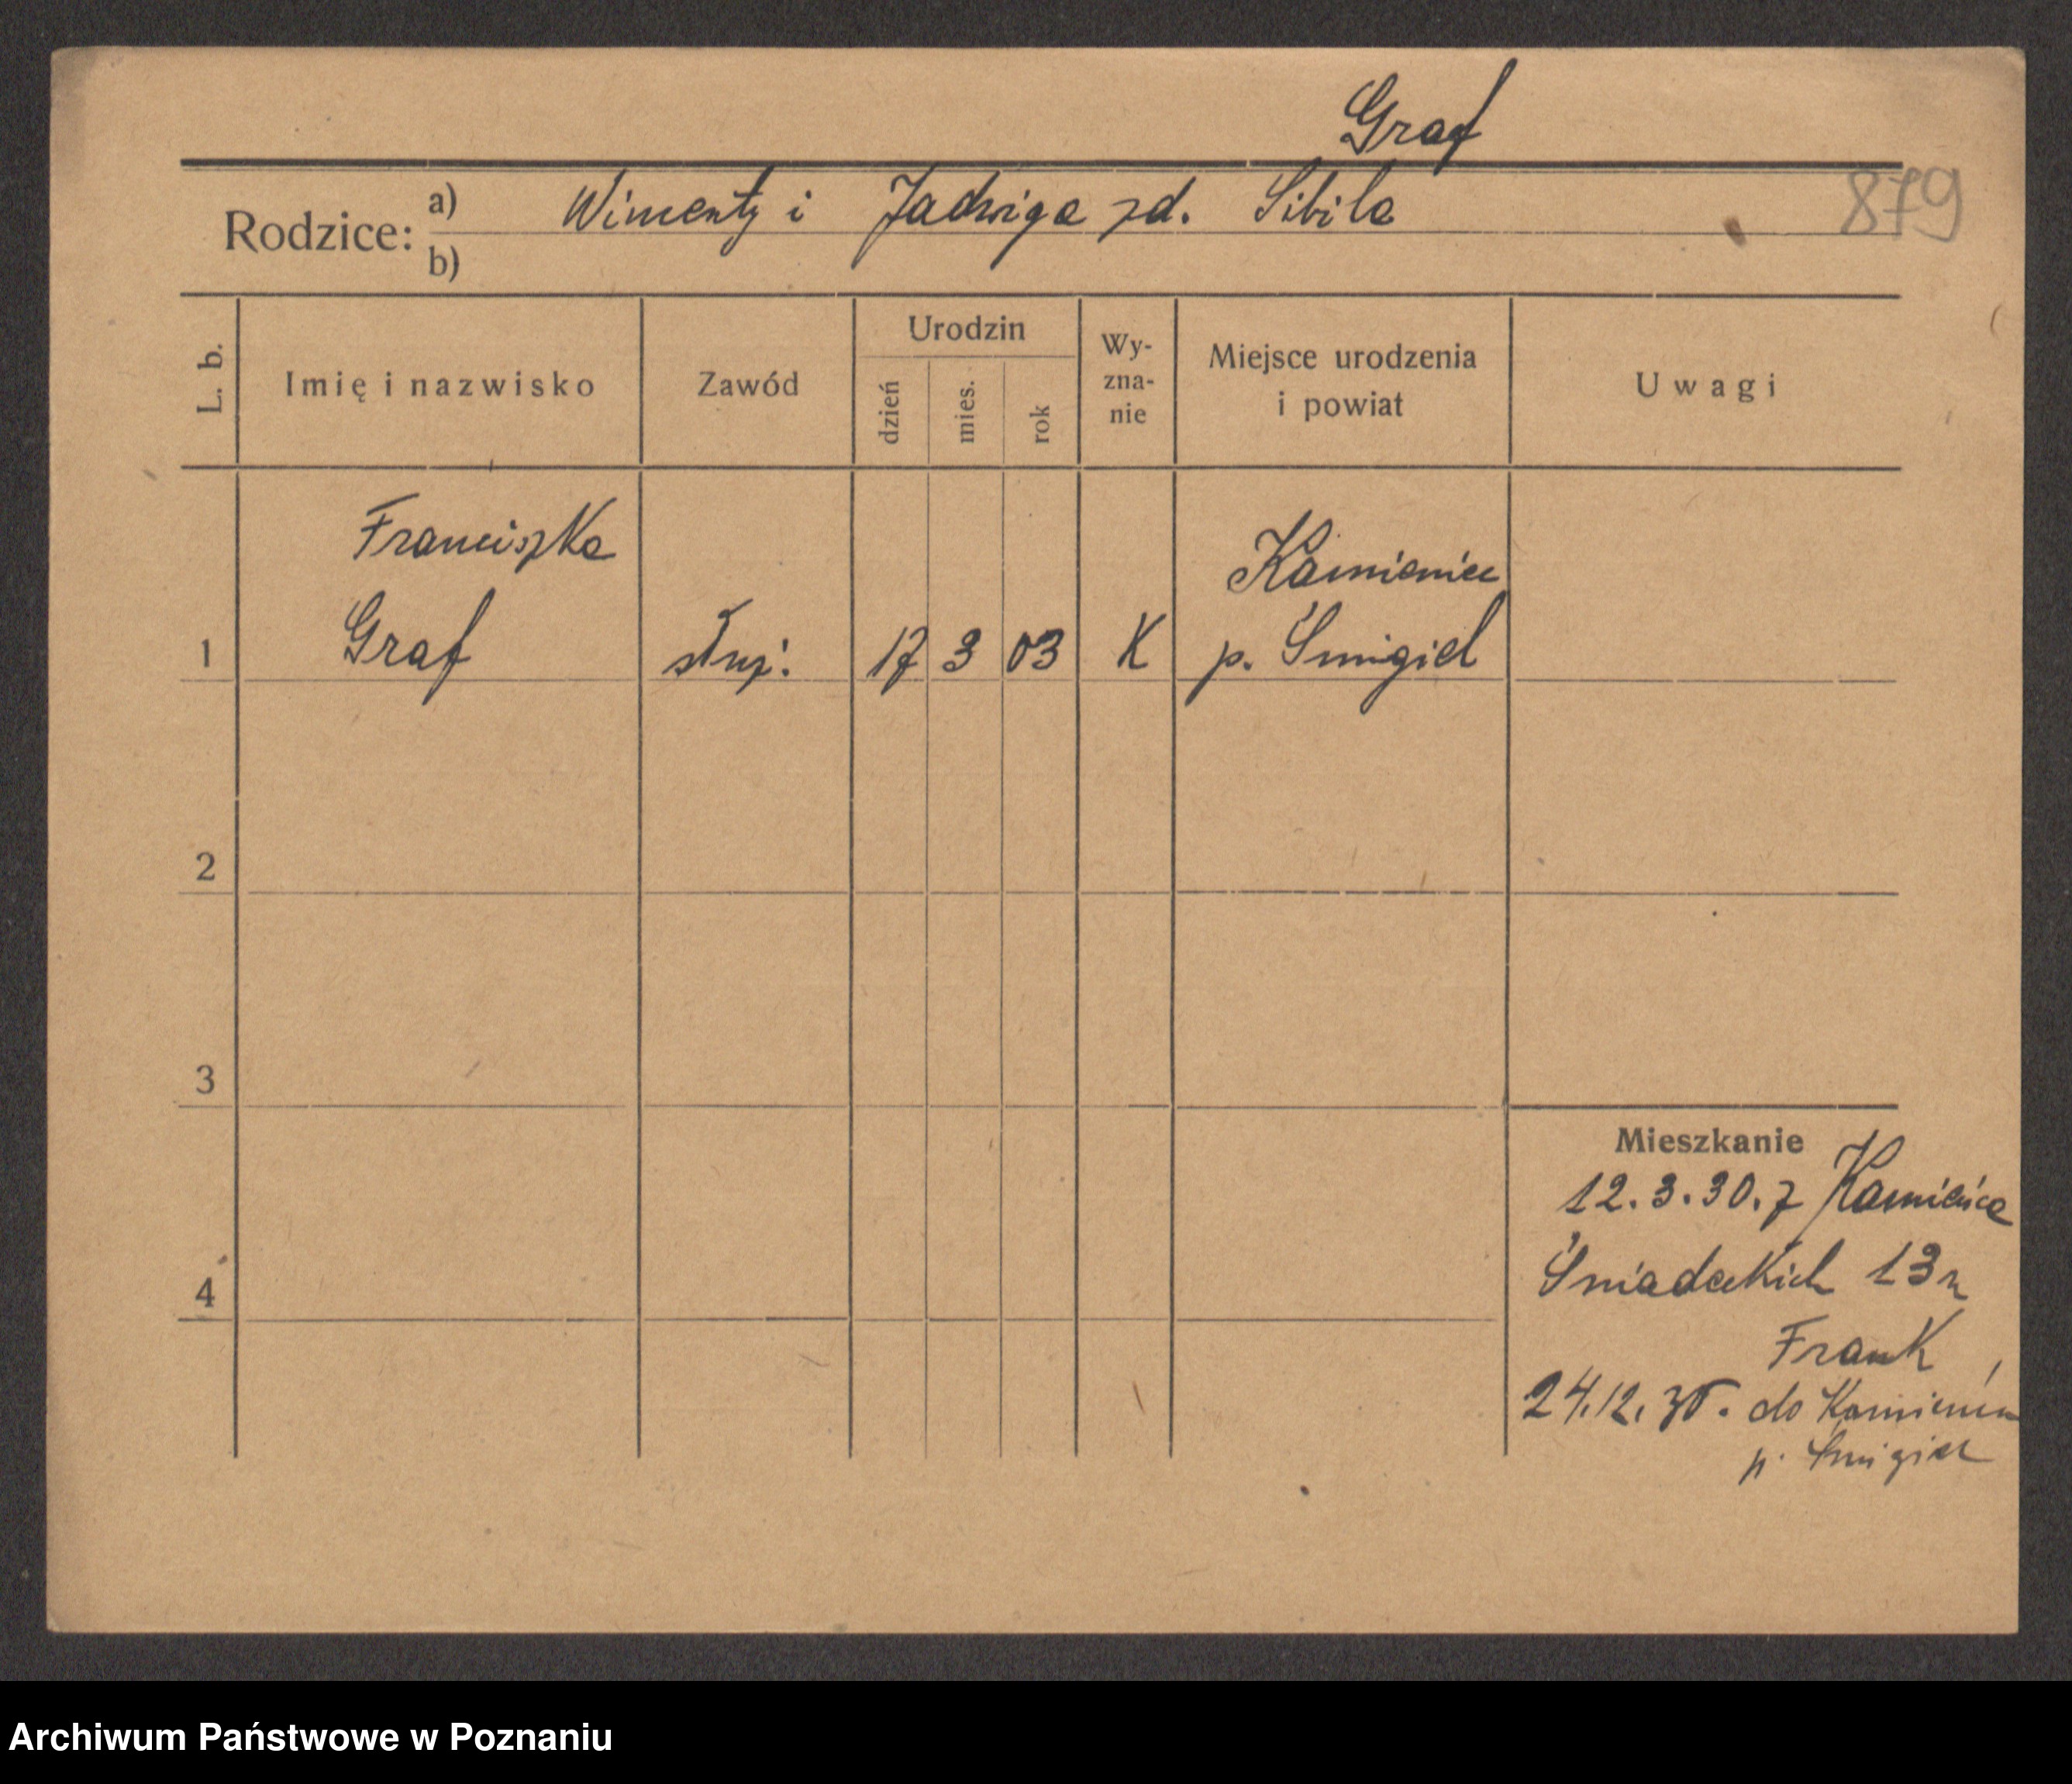 Graf
879
Rodzice: a) Wincenty i Jadwiga zd. Sibila
b)
L. b. Imię i nazwisko Zawód Urodzin dzień mies. rok Wy-zna-nie Miejsce urodzenia i powiat Uwagi
Franciszka Kamieniec
1 Graf służ. 17 3 03 K p. Śmigiel
2
3
Mieszkanie
12.3.30. z Kamieńca
4 Śniadeckich 13
Frank
24.12.30. do Kamieńca
p. Śmigiel
Archiwum Państwowe w Poznaniu